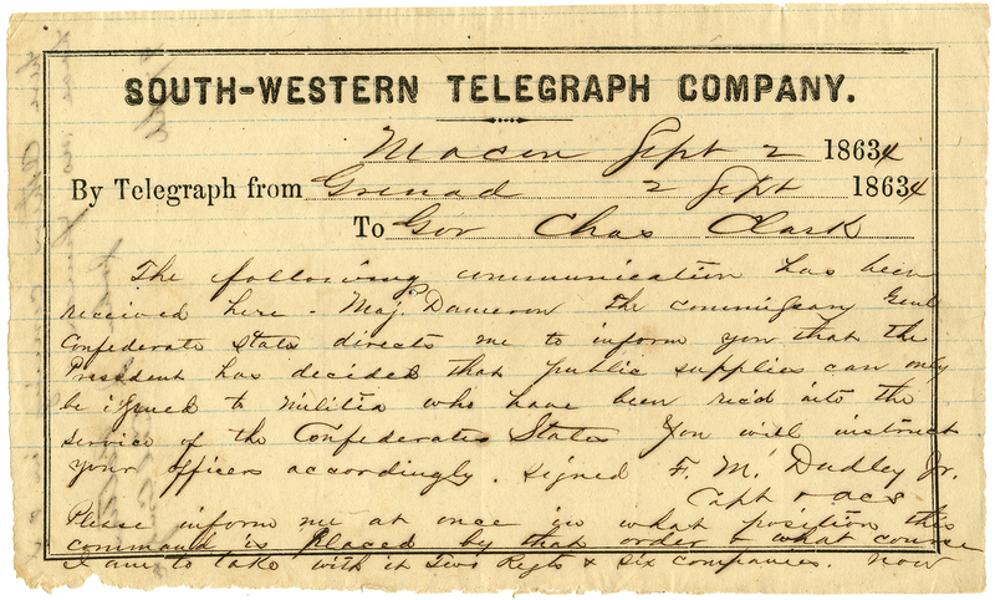 SOUTH-WESTERN TELEGRAPH COMPANY.
Macon Sept 2 18634
By Telegraph from Grenad 2 Sept 18634
To Gov Chas Clark
The following communication has been
received here - Maj. Dameron The commissary Genl
Confederate States directs me to inform you that the
President has decided that public supplies can only
be issued to militia who have been rec'd into the
service of the Confederate States You will instruct
your officers accordingly. Signed F. M. Dudley Jr.
Capt & acs
Please inform me at once in what position this
command is placed by that order & what course
I am to take with it Two Regts & six companies. now